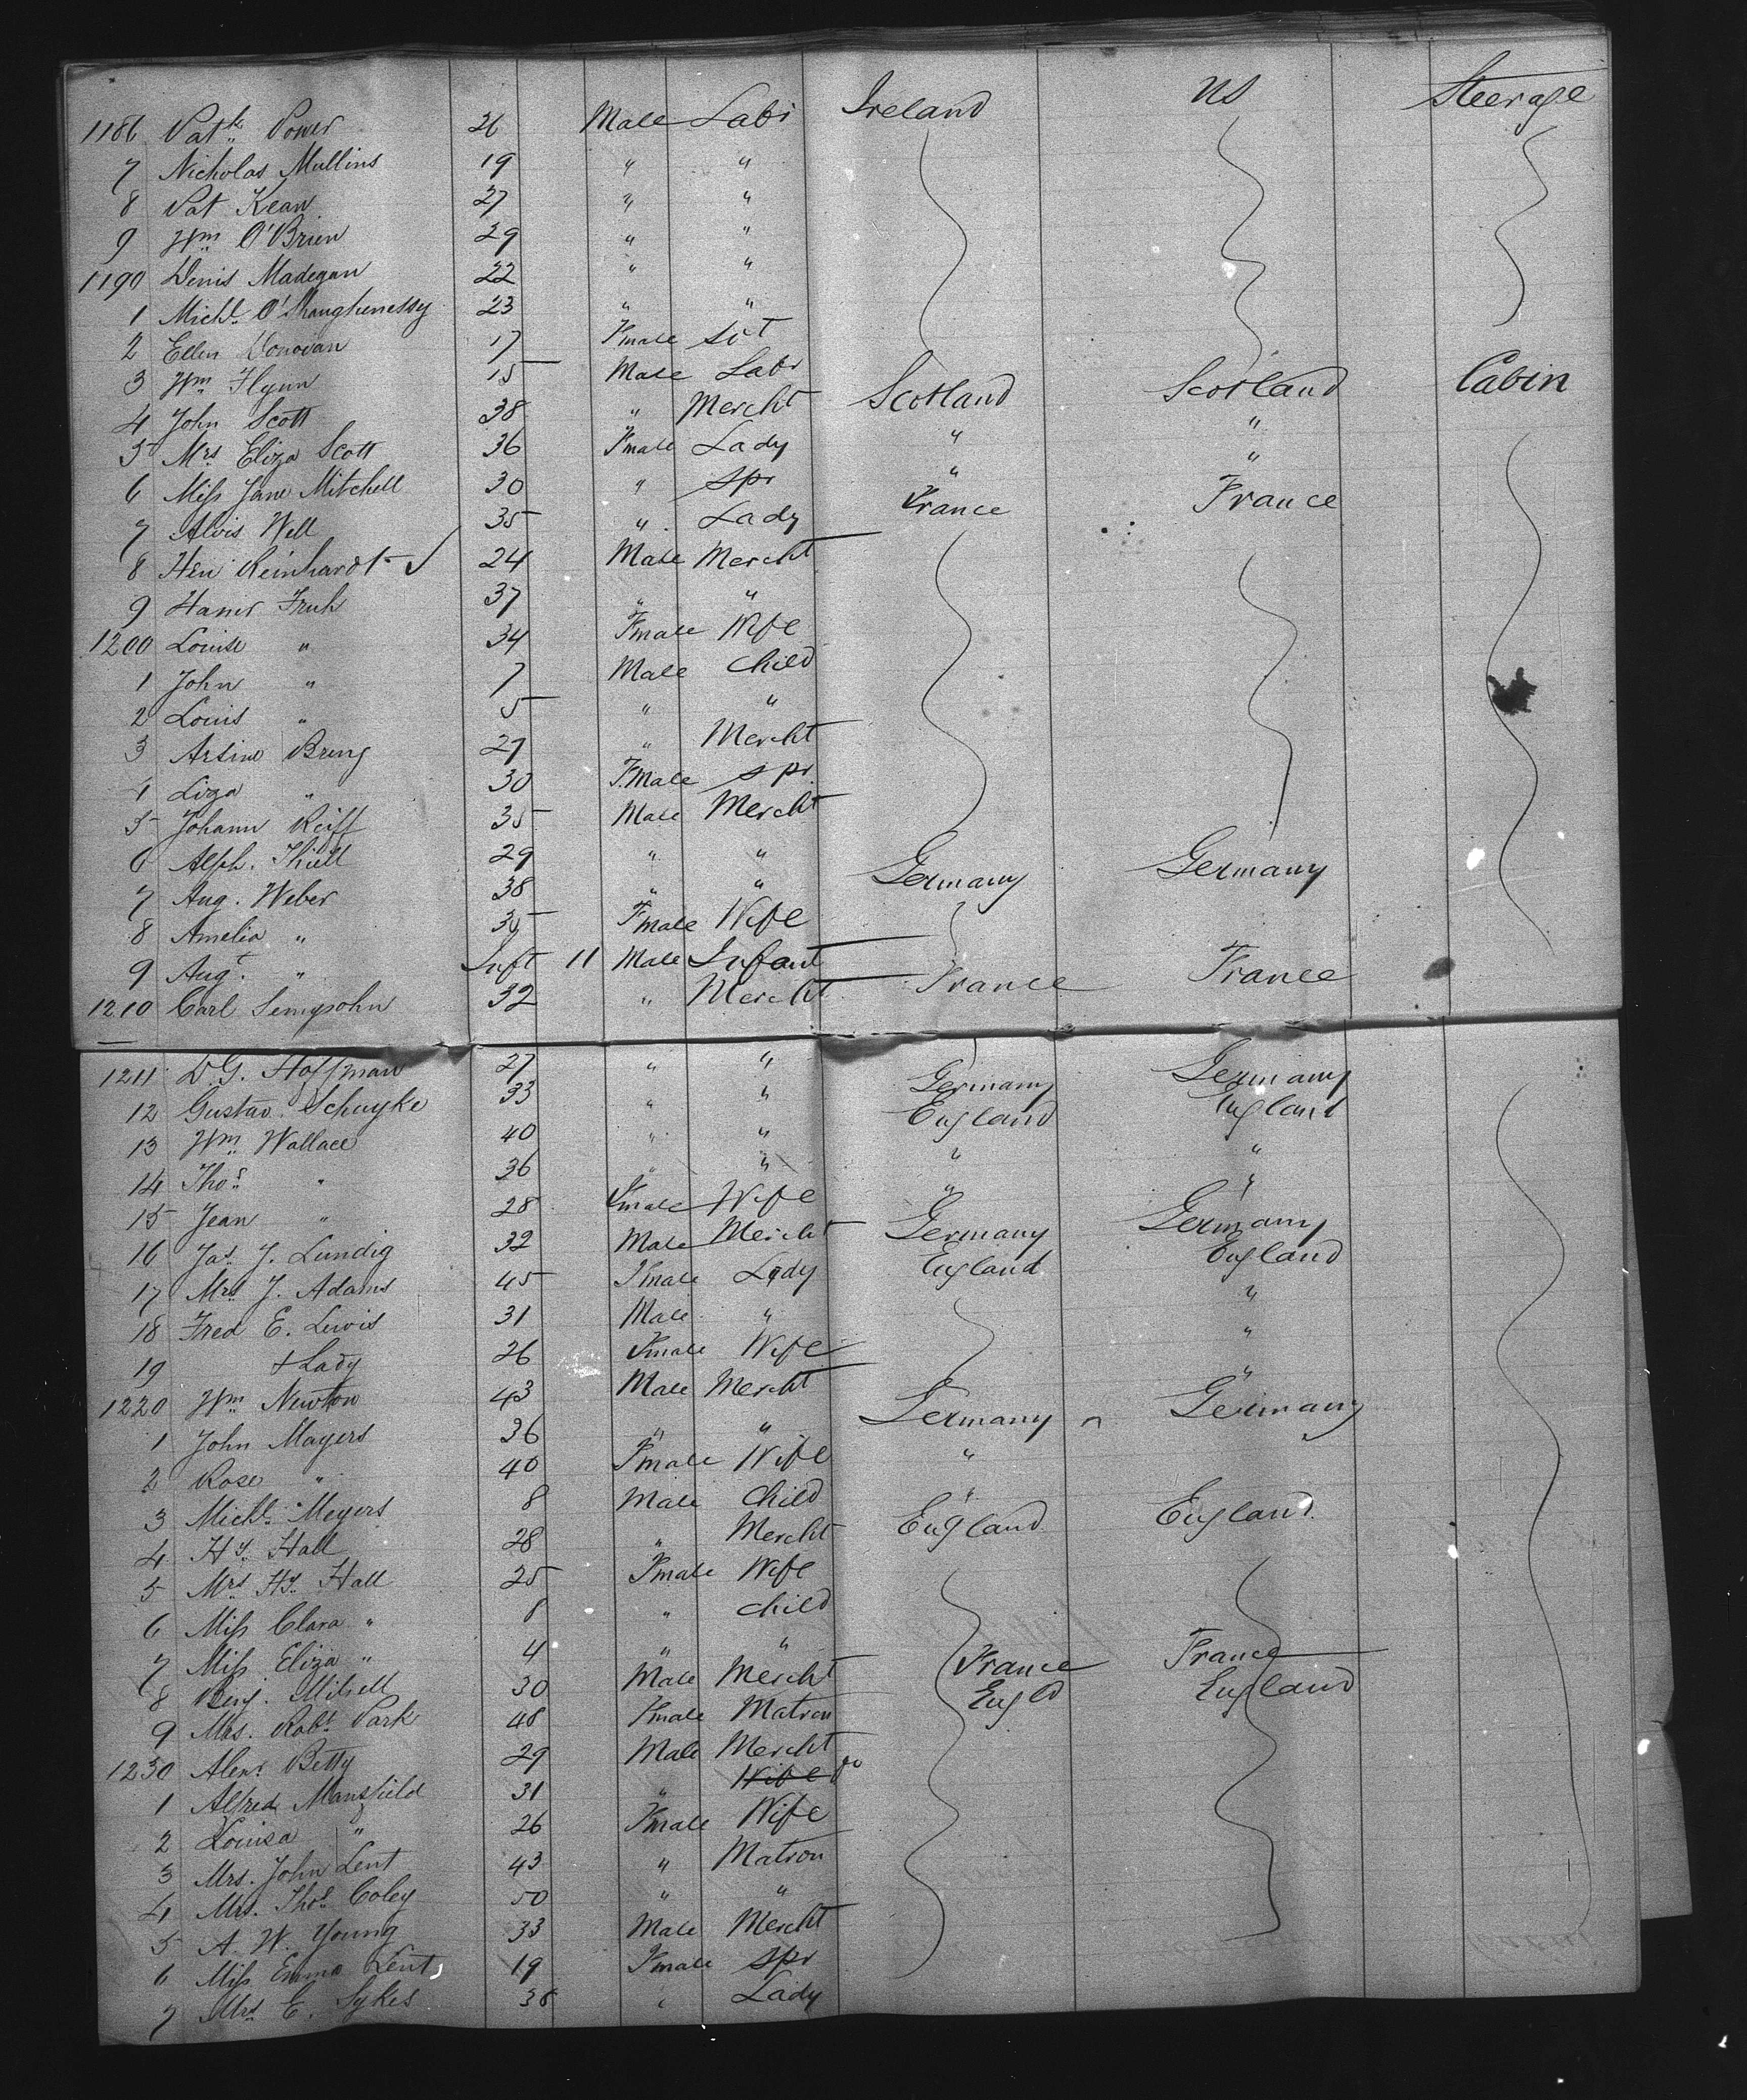 1186 Patk Power 26 Male Labr Ireland US Steerage
7 Nicholas Mullins 19 " "
8 Pat Kean 27 " "
9 Wm O'Brien 29 " "
1190 Denis Madegan 22 " "
1 Michl O'Shaughenessy 23 " "
2 Ellen Donovan 17 Fmale Svt
3 Wm Flynn 15 Male Labr
4 John Scott 38 " Mercht Scotland Scotland Cabin
5 Mrs Eliza Scott 36 Fmale Lady " "
6 Miss Jane Mitchell 30 " Spr " "
7 Alois Well 35 " Lady France France
8 Hen Reinhardt 24 Male Mercht
9 Fruh 37 " "
1200 Louise " 34 Fmale Wife
1 John " 7 Male Child
2 Louis " 5 " "
3 Arsine Breng 27 " Mercht
4 Liza " 30 Fmale Spr
5 Johann Reiff 35 Male Mercht
6 Alph. Thiell 29 " "
7 Aug. Weber 38 " " Germany Germany
8 Amelia " 35 Fmale Wife
9 Augt. " Inft 11 Male Infant
1210 Carl 32 " Mercht France France
1211 D.G. Hoffman 27 " "
12 Gustav. Schuyke 33 " " Germany Germany
13 Wm Wallace 40 " " England England
14 Thos " 36 " " " "
15 Jean " 28 Fmale Wife " "
16 Jas. J. Lundig 32 Male Mercht Germany Germany
17 Mrs J. Adams 45 Fmale Lady England England
18 Fred E. Lewis 31 Male " "
19 + Lady 26 Fmale Wife "
1220 Wm Newton 43 Male Mercht "
1 John Mayers 36 " " Germany " Germany
2 Rose " 40 Fmale Wife "
3 Michl Meyers 8 Male Child "
4 Hy. Hall 28 " Mercht England England
5 Mrs Hy. Hall 25 Fmale Wife
6 Miss Clara " 8 " Child
7 Miss Eliza " 4 " "
8 Benj. 30 Male Mercht France France
9 Mrs. Robt Park 48 Fmale Matron Engld England
1230 Alexr Betty 29 Male Mercht
1 Alfred Mansfield 31 " Wife do
2 Louisa " 26 Fmale Wife
3 Mrs. John Lent 43 " Matron
4 Mrs. Thos Coley 50 " "
5 A. W. Young 33 Male Mercht
6 Miss Emma Lent 19 Fmale Spr
7 Mrs E. Sykes 38 " Lady